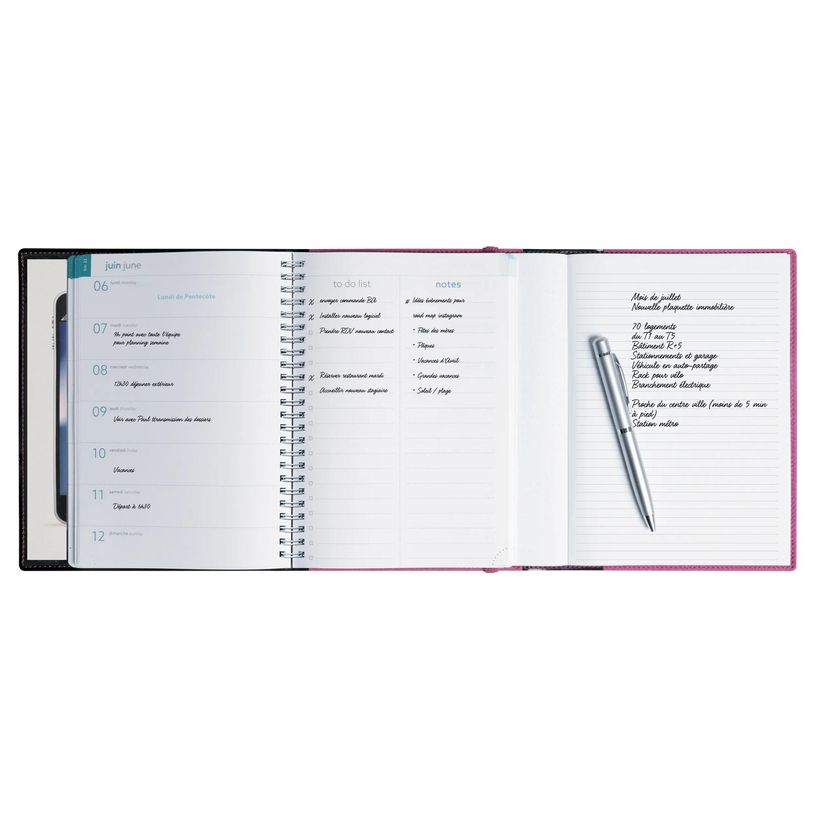 juin june
06 lundi monday
Lundi de Pentecôte
07 mardi tuesday
9h point avec toute l'équipe
pour planning semaine
08 mercredi wednesday
12h30 déjeuner extérieur
09 jeudi thursday
Voir avec Paul transmission des dossiers
10 vendredi friday
Vacances
11 samedi saturday
Départ à 6h30
12 dimanche sunday
to do list
x envoyer commande BA
x Installer nouveau logiciel
Prendre RDV nouveau contact
x Réserver restaurant mardi
Accueillir nouveau stagiaire
notes
# Idées évènements pour
road map instagram
• Fêtes des mères
• Pâques
• Vacances d'Avril
• Grandes vacances
• Soleil / plage
Mois de juillet
Nouvelle plaquette immobilière
70 logements
du T1 au T5
Bâtiment R+5
Stationnements et garage
Véhicule en auto-partage
Rack pour vélo
Branchement électrique
Proche du centre ville (moins de 5 min
à pied)
Station métro